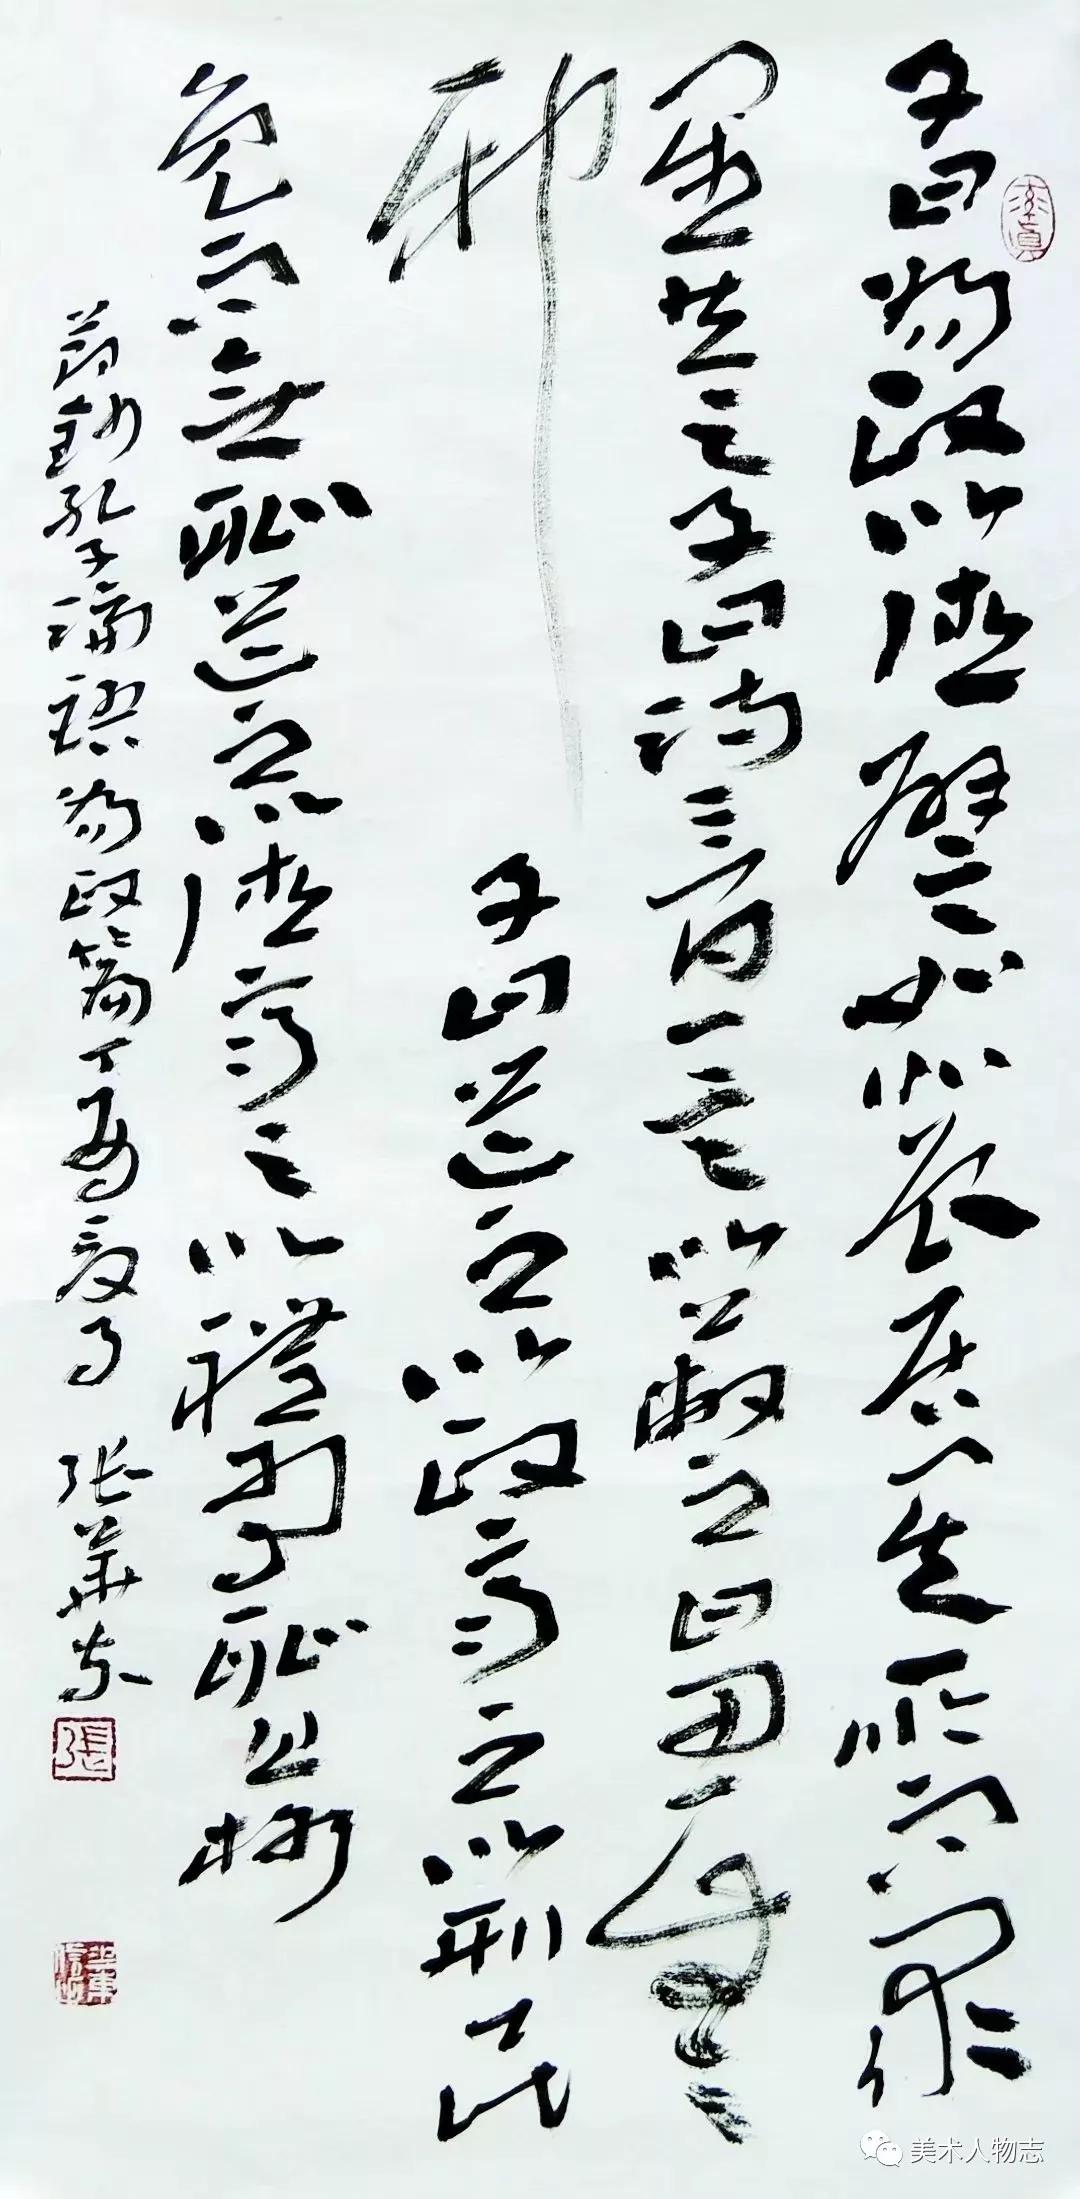 子曰為政以德譬如北辰居其所而眾
星共之子曰詩三百一言以蔽之曰思無
邪 子曰道之以政齊之以刑民
免而無恥道之以德齊之以禮有恥且格
節鈔孔子論語為政篇丁酉夏月 張華東
張
美术人物志